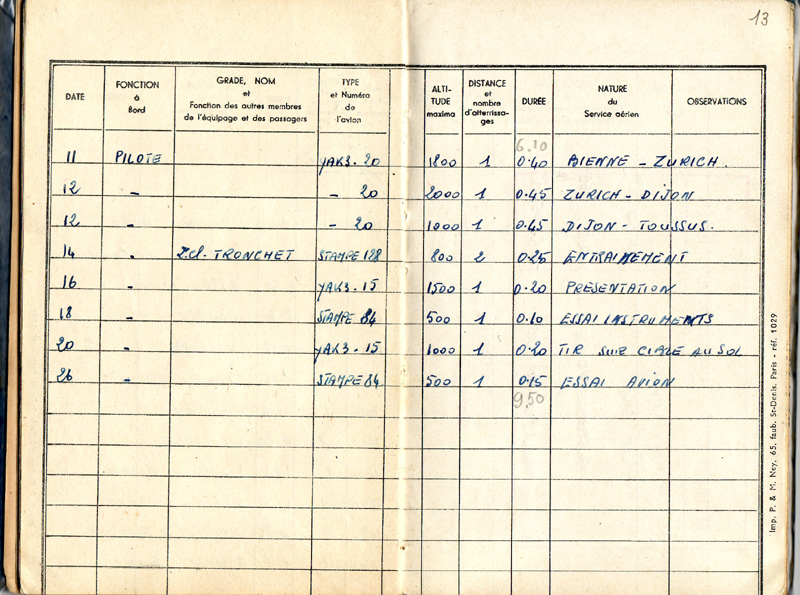 13
DATE FONCTION à Bord GRADE, NOM et Fonction des autres membres de l'équipage et des passagers TYPE et Numéro de l'avion ALTI-TUDE maxima DISTANCE et nombre d'atterrissa-ges DURÉE NATURE du Service aérien OBSERVATIONS
6.10
11 PILOTE YAK3. 20 1800 1 0.40 BIENNE - ZURICH.
12 - - 20 2000 1 0.45 ZURICH - DIJON
12 - - 20 1000 1 0.45 DIJON - TOUSSUS.
14 - TRONCHET STAMPE 128 800 2 0.25 ENTRAINEMENT
16 - YAK3. 15 1500 1 0.20 PRESENTATION
18 - STAMPE 84 500 1 0.10 ESSAI INSTRUMENTS
20 - YAK3 - 15 1000 1 0.20 TIR SUR CIBLE AU SOL
26 - STAMPE 84 500 1 0.15 ESSAI AVION
9.50
Imp. P. & M. Ney, 65, faub. St-Denis, Paris - réf. 1029